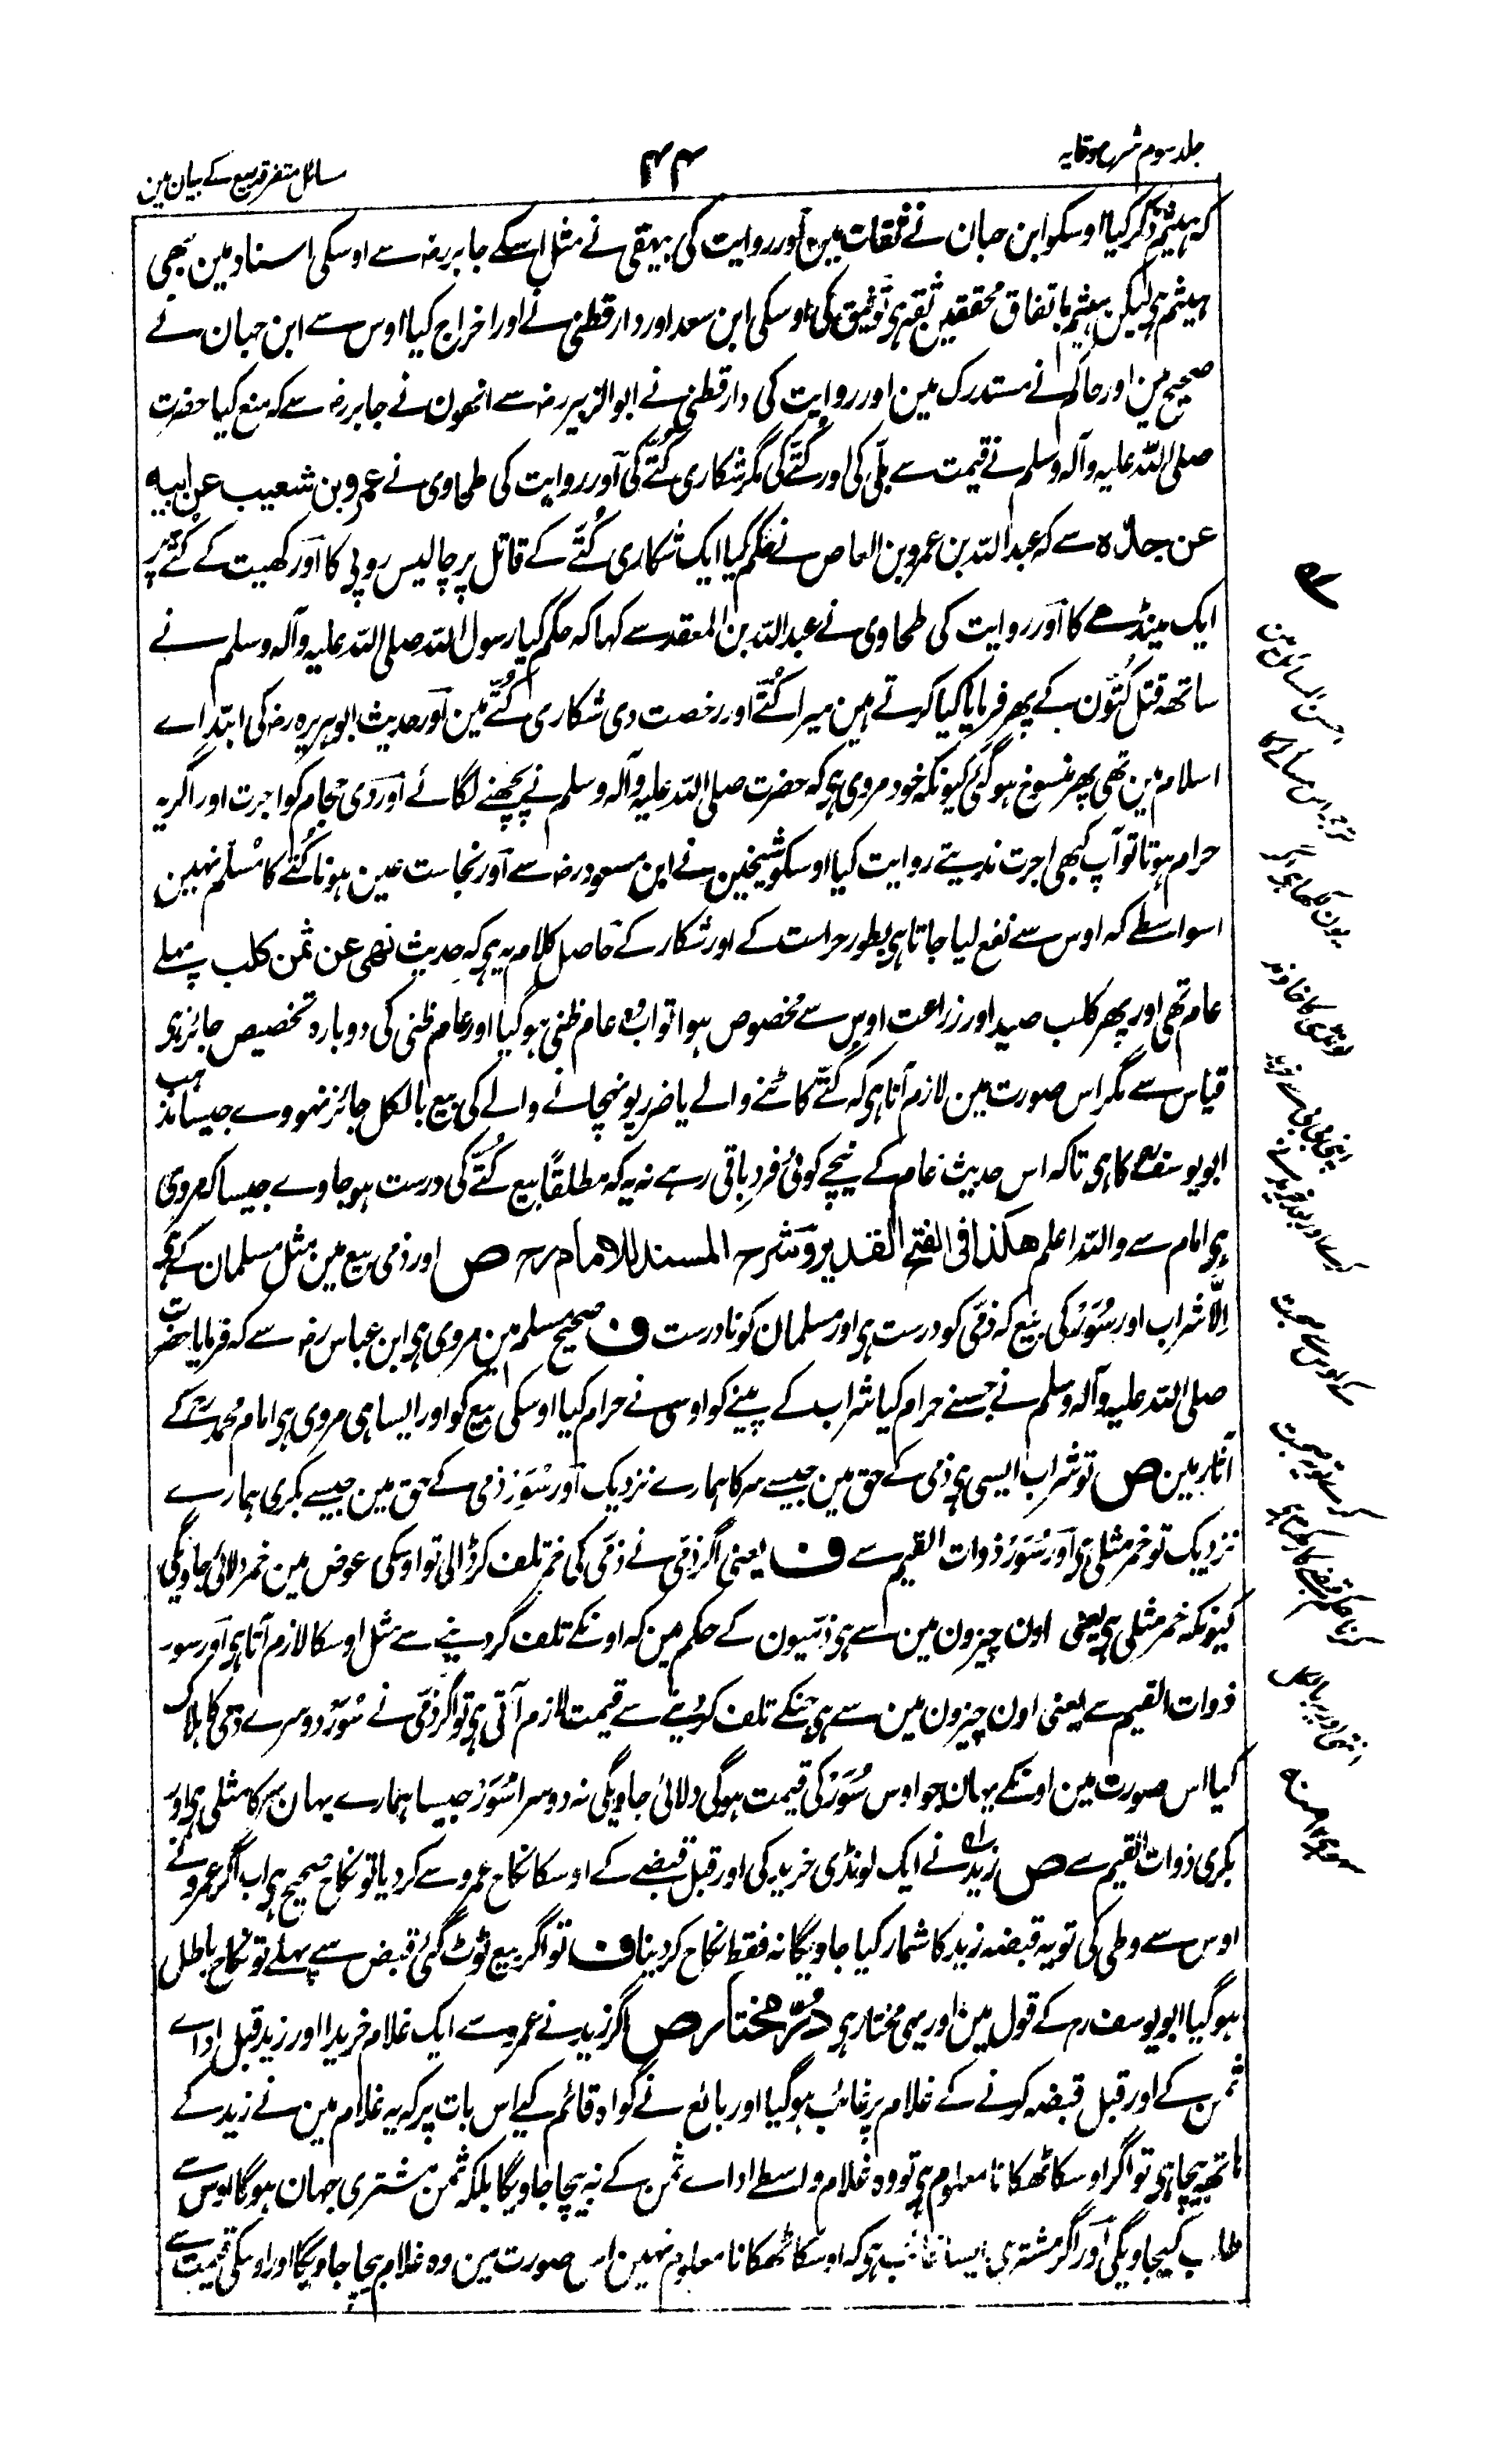 جلد سوم شرح وقایہ
۴۴
مسائل متفرقہ بیع کے بیان مین
کہ ہیثم ذکر کیا اوسکو ابن حبان نے ثقات مین اور روایت کی بیہقی نے مثل اسکے جابر رضہ سے اوسکی اسناد مین بھی
ہیثم ہی لیکن ہیثم باتفاق محققین ثقہ ہی توثیق کی اوسکی ابن سعد اور دارقطنی نے اور اخراج کیا اوس سے ابن حبان نے
صحیح مین اور حاکم نے مستدرک مین اور روایت کی دارقطنی نے ابو الزبیر رضہ سے انھون نے جابر رضہ سے کہ منع کیا حضرت
صلی اللہ علیہ وآلہ وسلم نے قیمت سے بلّی کی اور کُتّے کی مگر شکاری کُتّے کی اور روایت کی طحاوی نے عمرو بن شعیب عن ابیہ
عن جدہ سے کہ عبداللہ بن عمرو بن العاص نے حکم کیا ایک شکاری کُتّے کے قاتل پر چالیس روپی کا اور کھیت کے کُتّے پر
ایک مینڈھے کا اور روایت کی طحاوی نے عبداللہ بن المعقد سے کہا کہ حکم کیا رسول اللہ صلی اللہ علیہ وآلہ وسلم نے
ساتھ قتل کُتّون کے پھر فرمایا کیا کرتے ہین میرا کُتّے اور رخصت دی شکاری کُتّے مین اور حدیث ابو ہریرہ رضہ کی ابتداے
اسلام مین تھی پھر منسوخ ہوگئی کیونکہ خود مروی ہی کہ حضرت صلی اللہ علیہ وآلہ وسلم نے پچھنے لگائے اور دی حجام کو اجرت اور اگر یہ
حرام ہوتا تو آپ کبھی اجرت ندیتے روایت کیا اوسکو شیخین نے ابن مسعود رضہ سے اور نجاست عین ہونا کُتّے کا مسلّم نہین
اسواسطے کہ اوس سے نفع لیا جاتا ہی بطور حراست کے اور شکار کے حاصل کلام یہ ہی کہ حدیث نھی عن ثمن کلب پہلے
عام تھی اور پھر کلب صید اور زراعت اوس سے مخصوص ہوا تو اب وہ عام ظنی ہوگیا اور عام ظنی کی دوبارہ تخصیص جائز ہی
قیاس سے مگر اس صورت مین لازم آتا ہی کہ کُتّے کاٹنے والے یا ضرر پونہچانے والے کی بیع بالکل جائز نہووے جیسا مذہب
ابو یوسف رح کا ہی تاکہ اس حدیث عام کے نیچے کوئی فرد باقی رہے نہ یہ کہ مطلقاً بیع کُتّے کی درست ہو جاوے جیسا کہ مروی
ہی امام سے واللہ اعلم ھکذا فی الفتح القدیر وشرح المسند للامام رح ص اور ذمی بیع مین مثل مسلمان کے ہی
اِلّا شراب اور سُوَر کی بیع کہ ذمّی کو درست ہی اور مسلمان کو نادرست ف صحیح مسلم مین مروی ہی ابن عباس رضہ سے کہ فرمایا حضرت
صلی اللہ علیہ وآلہ وسلم نے جسنے حرام کیا شراب کے پینے کو اوسی نے حرام کیا اوسکی بیع کو اور ایسا ہی مروی ہی امام محمد رح کے
آثار مین ص تو شراب ایسی ہی ذمی کے حق مین جیسے سرکا ہمارے نزدیک اور سُوَر ذمی کے حق مین جیسے بکری ہمارے
نزدیک تو خمر مثلی ہی اور سُوَر ذوات القیم سے ف یعنی اگر ذمّی نے ذمّی کی خمر تلف کر ڈالی تو اوسکی عوض مین خمر دلائی جاویگی
کیونکہ خمر مثلی ہی یعنی اون چیزون مین سے ہی ذمّیون کے حکم مین کہ اونکے تلف کردینے سے مثل اوسکا لازم آتا ہی اور سور
ذوات القیم سے یعنی اون چیزون مین سے ہی جنکے تلف کردینے سے قیمت لازم آتی ہی تو اگر ذمّی نے سُوَر دوسرے ذمی کا ہلاک
کیا اس صورت مین اونکے یہان جو اوس سُوَر کی قیمت ہوگی دلائی جاویگی نہ دوسرا سُوَر جیسا ہمارے یہان سرکا مثلی ہی اور
بکری ذوات القیم سے ص زید نے ایک لونڈی خرید کی اور قبل قبضے کے اوسکا نکاح عمرو سے کردیا تو نکاح صحیح ہی اب اگر عمرو نے
اوس سے وطی کی تو یہ قبضہ زید کا شمار کیا جاویگا نہ فقط نکاح کردینا ف تو اگر بیع ٹوٹ گئی قبض سے پہلے تو نکاح باطل
ہوگیا ابو یوسف رح کے قول مین اور یہی مختار ہی درّ مختار ص اگر زید نے عمرو سے ایک غلام خریدا اور زید قبل اداے
ثمن کے اور قبل قبضہ کرنے کے غلام پر غائب ہوگیا اور بائع نے گواہ قائم کیے اس بات پر کہ یہ غلام مین نے زید کے
ہاتھ بیچا ہی تو اگر اوسکا ٹھکانا معلوم ہی تو وہ غلام واسطے اداے ثمن کے نہ بیچا جاویگا بلکہ ثمن مشتری جہان ہوگا اوس سے
طلب کیجاویگی اور اگر مشتری ایسا غائب ہی کہ اوسکا ٹھکانا معلوم نہین اس صورت مین وہ غلام بیچا جاویگا اور اوسکی قیمت سے
یون لکھا ہی کہ
لونڈی کا خاوند